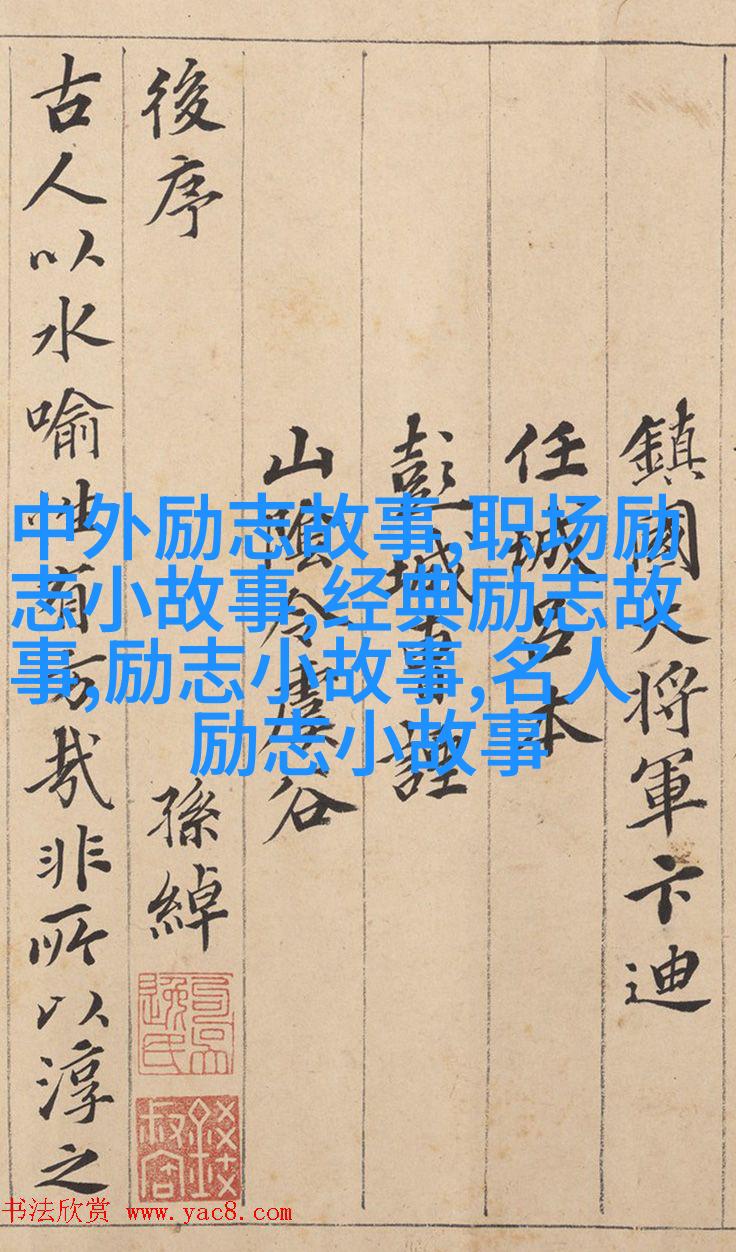 鎮國大將軍卞迪
任城呂本
彭城曹諲
山陰令虞谷
後序 孫綽
古人以水喻性有旨哉非所以淳之
中外励志故事,职场励
志小故事,经典励志故
事,励志小故事,名人
励志小故事
书法欣赏 www.yac8.com